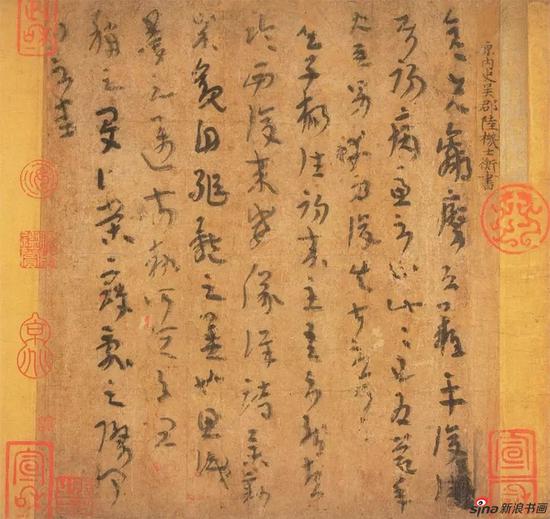 原内史吳郡陸機士衡書
彦先羸瘵恐難平復往屬
初病慮不止此此已為慶承
使唯男幸為復失前憂耳吳
子楊往初來主吾不能盡
臨西復來威儀詳跱舉動
成觀自軀體之美也思識
量之邁前執所恒有宜
稱之夏伯榮寇亂之際聞
問不悉
宣和
政和
sina新浪书画